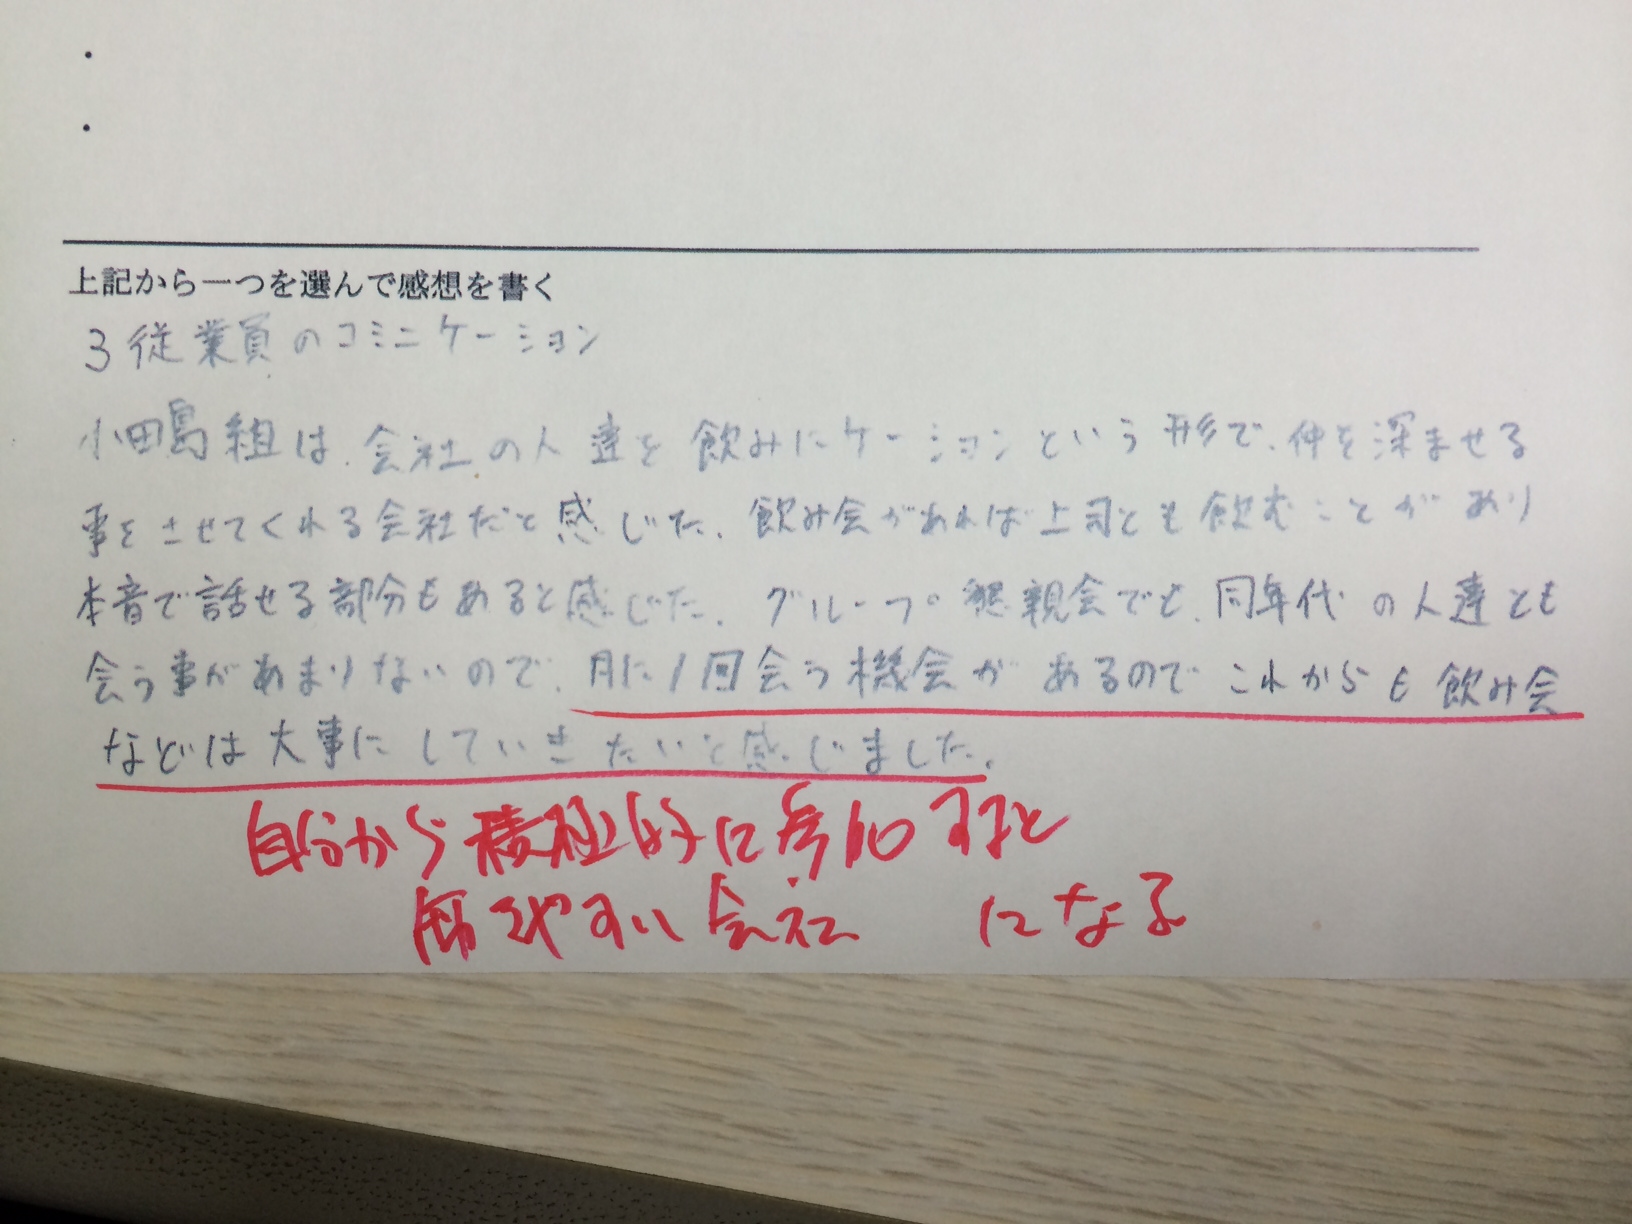 ・
・
上記から一つを選んで感想を書く
3従業員のコミニケーション
小田島組は、会社の人達を飲みにケーションという形で、仲を深ませる
事をさせてくれる会社だと感じた。飲み会があれば上司とも飲むことがあり
本音で話せる部分もあると感じた。グループ懇親会でも、同年代の人達とも
会う事があまりないので、月に1回会う機会があるのでこれからも飲み会
などは大事にしていきたいと感じました。
自分から積極的に参加すると
居やすい会社になる